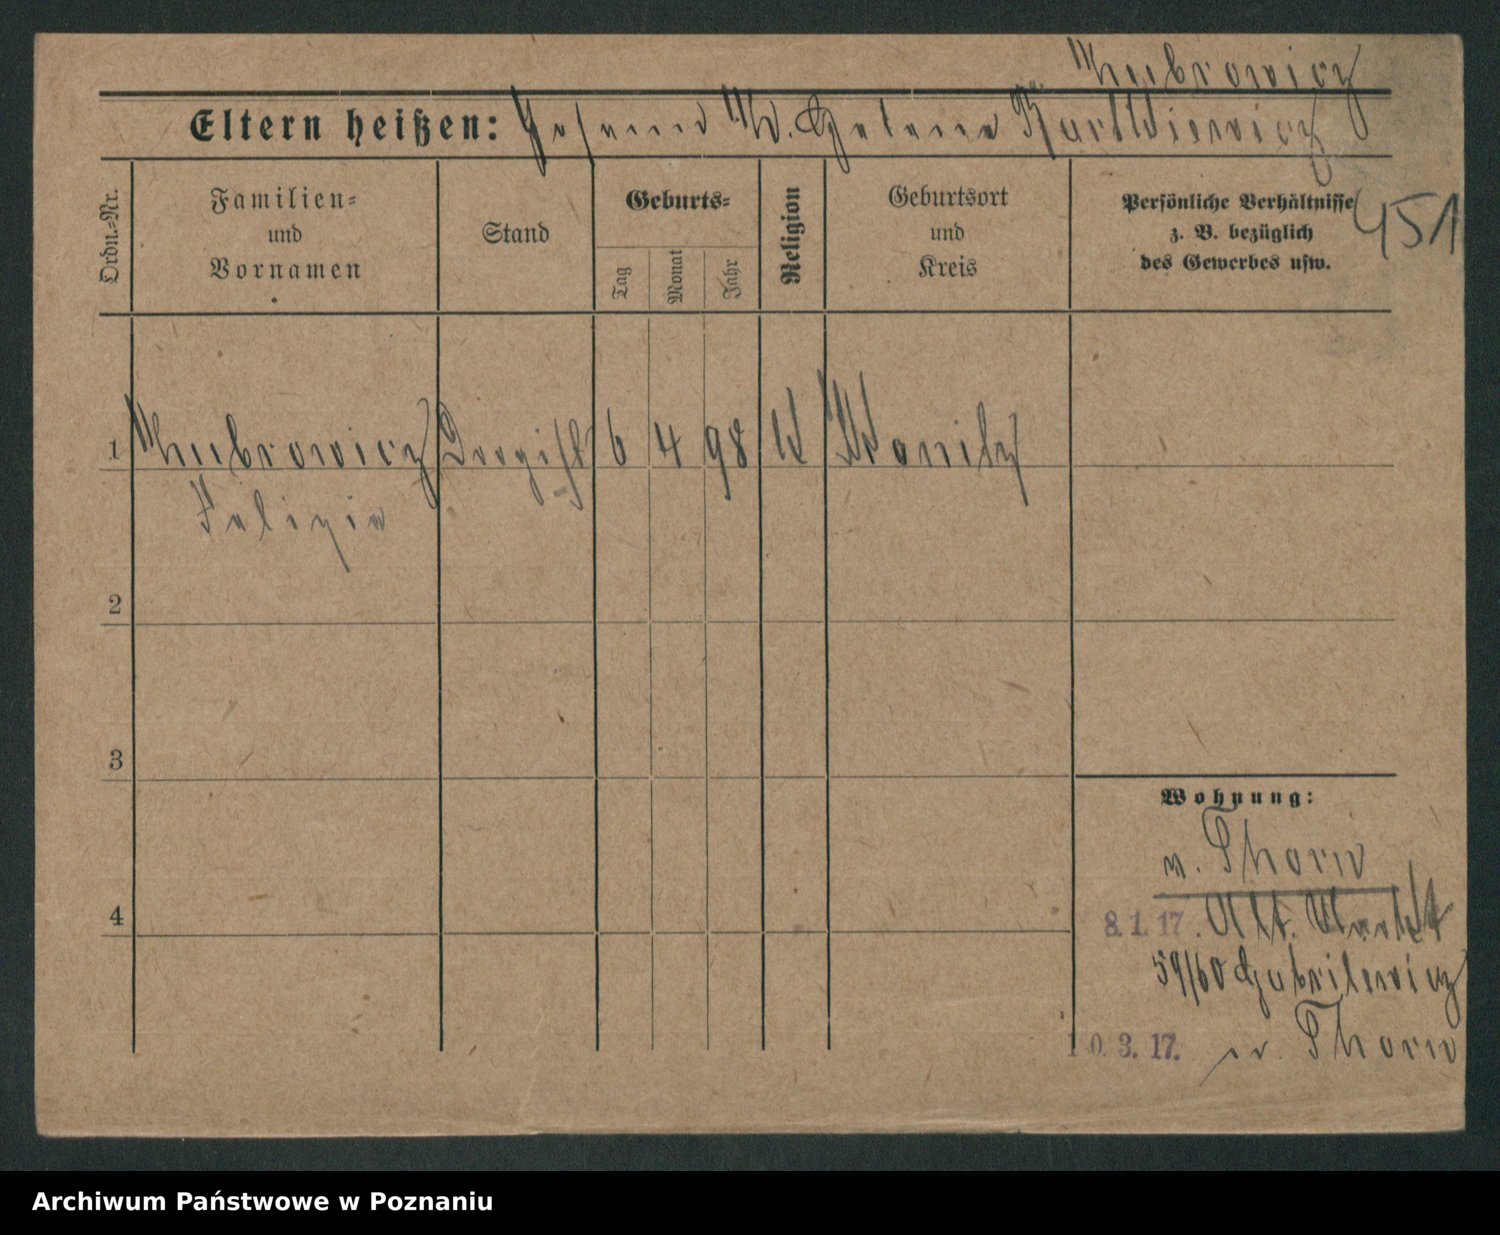 Eltern heißen: Johann u. Helene
451
Ordn.-Nr.
Familien-
und
Vornamen
Stand
Geburts-
Tag
Monat
Jahr
Religion
Geburtsort
und
Kreis
Persönliche Verhältnisse
z. B. bezüglich
des Gewerbes usw.
1
Drogist 6 4 98 k
2
3
4
Wohnung:
n. Thorn
8. 1. 17. Alt. Markt
59/60 Gabrilewicz
10. 3. 17. n. Thorn
Archiwum Państwowe w Poznaniu